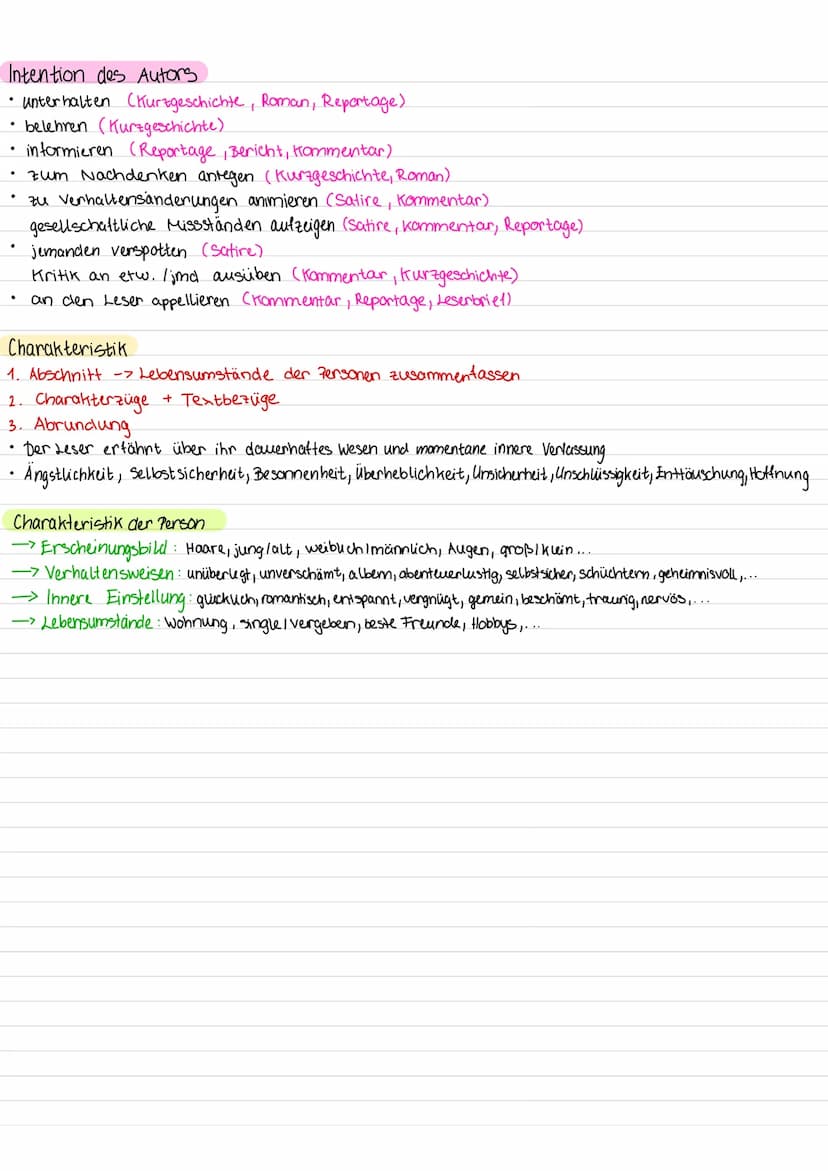 Intention des Autors
• unterhalten (Kurzgeschichte, Roman, Reportage)
• belehren (Kurzgeschichte)
• informieren (Reportage, Bericht, Kommentar)
• zum Nachdenken anregen (Kurzgeschichte, Roman)
• zu Verhaltensänderungen animieren (Satire, Kommentar)
gesellschaftliche Missständen aufzeigen (Satire, Kommentar, Reportage)
• jemanden verspotten (Satire)
Kritik an etw. /jmd ausüben (Kommentar, Kurzgeschichte)
• an den Leser appellieren (Kommentar, Reportage, Leserbrief)
Charakteristik
1. Abschnitt -> Lebensumstände der Personen zusammenfassen
2. Charakterzüge + Textbezüge
3. Abrundung
• Der Leser erfährt über ihr dauerhaftes Wesen und momentane innere Verfassung
• Ängstlichkeit, Selbstsicherheit, Besonnenheit, Überheblichkeit, Unsicherheit, Unschlüssigkeit, Enttäuschung, Hoffnung
Charakteristik der Person
-> Erscheinungsbild: Haare, jung/alt, weiblich/männlich, Augen, groß/klein...
-> Verhaltensweisen: unüberlegt, unverschämt, albern, abenteuerlustig, selbstsicher, schüchtern, geheimnisvoll,...
-> Innere Einstellung: glücklich, romantisch, entspannt, vergnügt, gemein, beschämt, traurig, nervös,...
-> Lebensumstände: Wohnung, single/vergeben, beste Freunde, Hobbys,...